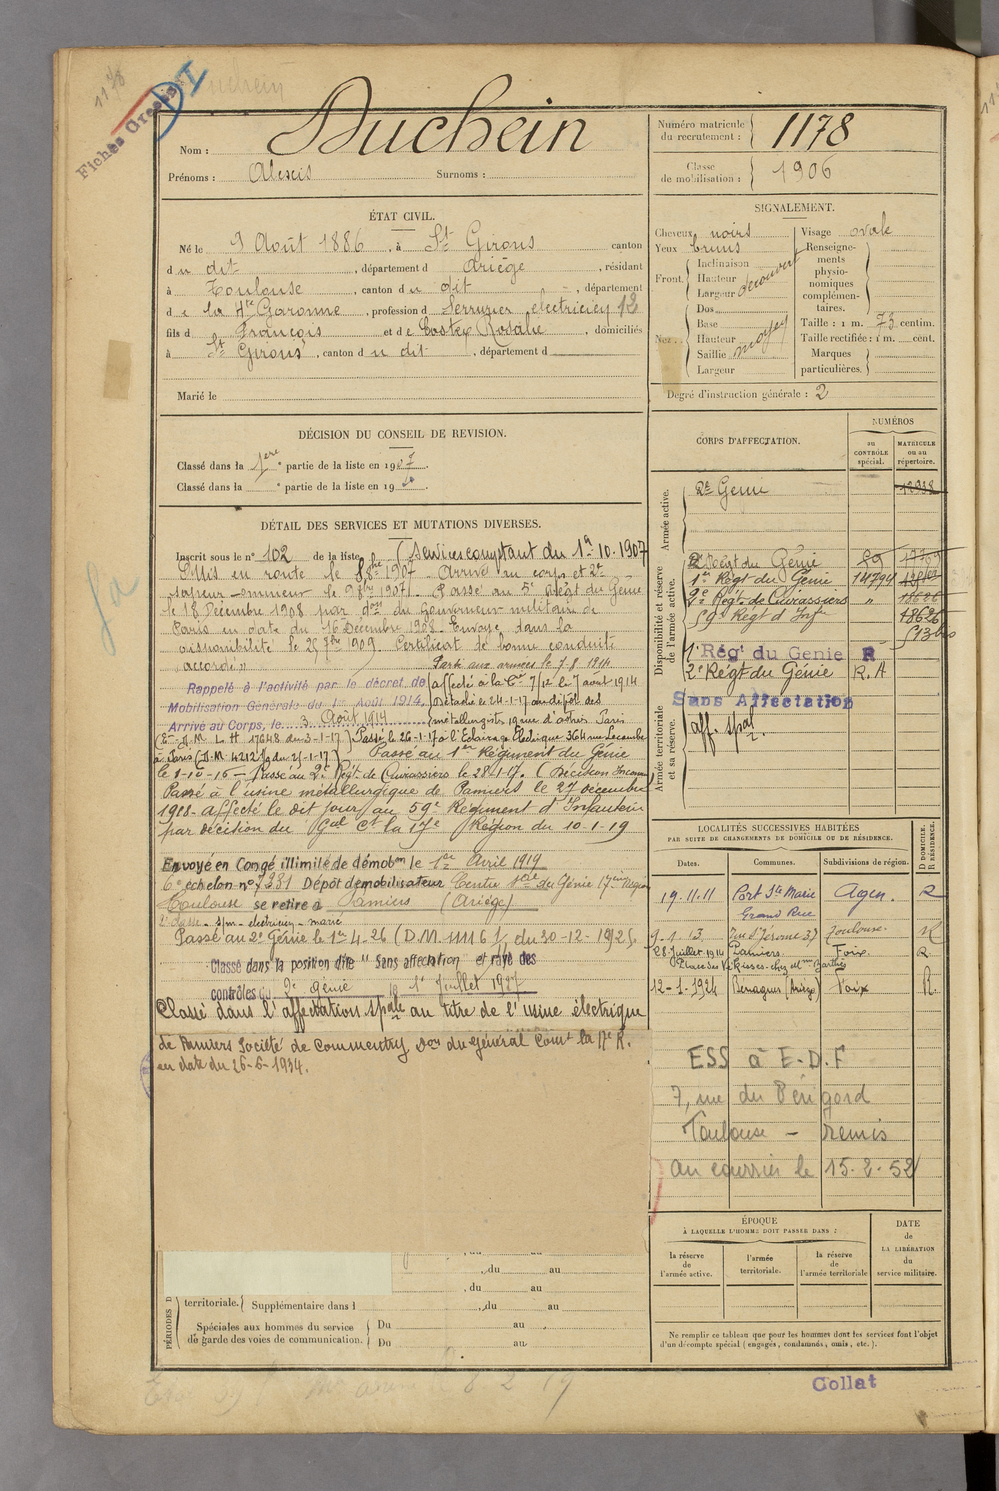 1178
Fiches Créées
DI
Nom : Duchein
Prénoms : Alexis Surnoms :
Numéro matricule du recrutement : 1178
Classe de mobilisation : 1906
ÉTAT CIVIL.
Né le 9 Août 1886, à St Girons canton
du dit, département d Ariège, résidant
à Toulouse, canton du dit, département
de la Hte Garonne, profession d Serrurier electricien 12
fils de François et de Costes Rosalie, domiciliés
à St Girons, canton du dit, département d
Marié le
SIGNALEMENT.
Cheveux noirs Visage ovale
Yeux bruns
Front. Inclinaison
Hauteur
Largeur découvert
Nez. Dos
Base
Hauteur
Saillie moyen
Largeur
Renseignements physionomiques complémentaires.
Taille : 1 m. 73 centim.
Taille rectifiée : 1 m. cent.
Marques particulières.
Degré d'instruction générale : 2
DÉCISION DU CONSEIL DE REVISION.
Classé dans la 1ère partie de la liste en 1907.
Classé dans la e partie de la liste en 19
DÉTAIL DES SERVICES ET MUTATIONS DIVERSES.
Inscrit sous le n° 102 de la liste (Services comptant du 1er 10-1907
Mis en route le 8 8bre 1907. Arrivé au corps et 2e
sapeur-mineur le 9 8bre 1907. Passé au 5e Régt du Génie
le 18 Décembre 1908 par don du Gouverneur militaire de
Paris en date du 16 Décembre 1908. Envoyé dans la
disponibilité le 25 7bre 1909. Certificat de bonne conduite
"accordé"
Parti aux armées le 7-8-1914
Rappelé à l'activité par le décret de
Mobilisation Générale du 1er Août 1914
Arrivé au Corps, le 3 Août 1914
affecté à la Cie 7/12 le 7 août 1914
Détaché le 24-1-17 au dépôt des
métallurgistes Paris
à Paris
Passé le 26-1-17 à l'Eclairage Electrique 364 rue Lecourbe
Passé au 1er Régiment du Génie
le 1-10-16 - Passé au 2e Régt de Cuirassiers le 28-1-17.
Passé à l'usine métallurgique de Pamiers le 27 décembre
1918 - affecté le dit jour au 59e Régiment d'Infanterie
par décision du Gal Ct la 17e Région du 10-1-19
Envoyé en Congé illimité de démobon le 1er Avril 1919
6e échelon n° 7331 Dépôt démobilisateur Centre du Génie 17ème Région
Toulouse se retire à Pamiers (Ariège)
2e classe - s/m - electricien - marié
Passé au 2e Génie le 1er 4-26 (D.M. 11116 du 30-12-1925.
Classé dans la position dite "Sans affectation" et rayé des
contrôles du 2e Génie le 1er Juillet 1927
Classé dans l'affectation spale au titre de l'usine électrique
de Pamiers Société de Commentry Don du Général Comt la 17e R.
en date du 26-6-1934.
CORPS D'AFFECTATION.
NUMÉROS
au CONTRÔLE spécial.
MATRICULE ou au répertoire.
Armée active.
2e Génie 12938
Disponibilité et réserve de l'armée active.
2e Régt du Génie 89
1er Régt du Génie 14794
2e Régt de Cuirassiers "
59e Régt d'Infie 18626
1er Rég' du Genie R
2e Régt du Génie R.A
Sans Affectation
Armée territoriale et sa réserve.
aff. spal.
LOCALITÉS SUCCESSIVES HABITÉES
PAR SUITE DE CHANGEMENTS DE DOMICILE OU DE RÉSIDENCE.
Dates. Communes. Subdivisions de région. D DOMICILE. R RÉSIDENCE.
19.11.11 Port Ste Marie Agen. R
Grand Rue
9-1-13 rue St Jérome 37 Toulouse R
28 Juillet 1914 Pamiers Foix R
12-1-1924 Bénagues (Ariège) Foix R.
ESS à E-D-F
7, rue du Périgord
Toulouse - Remis
au courrier le 15-2-52
ÉPOQUE
À LAQUELLE L'HOMME DOIT PASSER DANS :
la réserve de l'armée active.
l'armée territoriale.
la réserve de l'armée territoriale
DATE de LA LIBÉRATION du service militaire.
, du au
, du au
territoriale. Supplémentaire dans l , du au
Spéciales aux hommes du service de garde des voies de communication.
Du au
Du au
Ne remplir ce tableau que pour les hommes dont les services font l'objet
d'un décompte spécial (engagés, condamnés, omis, etc.).
Collat